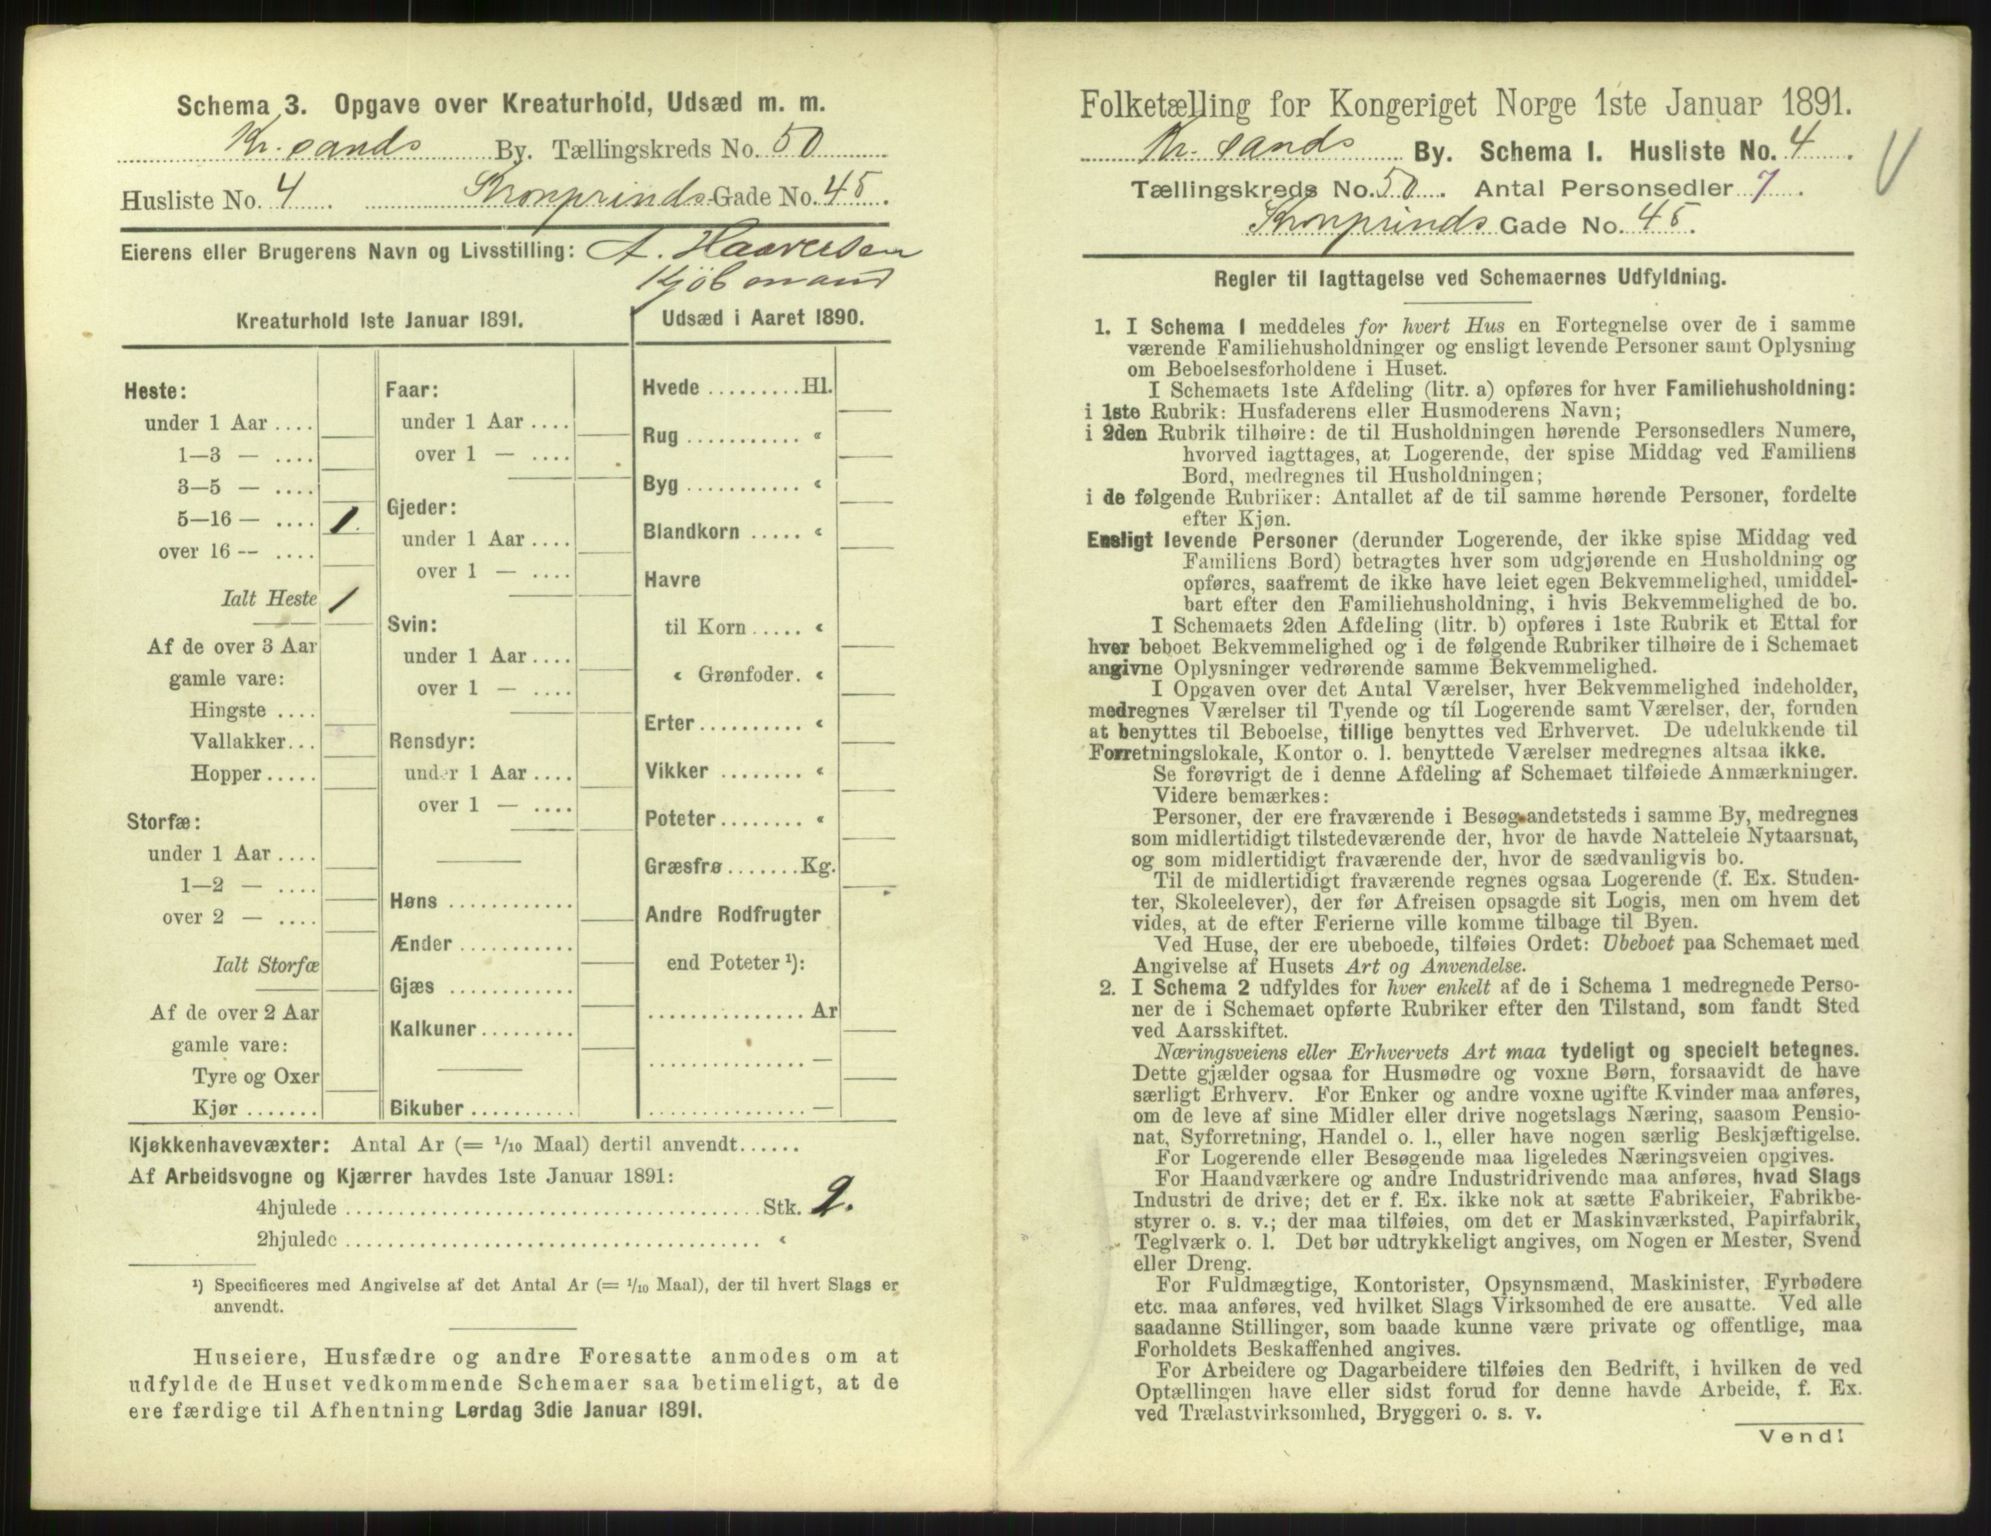 Schema 3. Opgave over Kreaturhold, Udsæd m. m.
Kr. sands By. Tællingskreds No. 50
Husliste No. 4 Kronprinds-Gade No. 45.
Eierens eller Brugerens Navn og Livsstilling: A. Haaversen
Kjöbmand
Kreaturhold 1ste Januar 1891.
Heste:
under 1 Aar ....
1—3 — ....
3—5 — ....
5—16 — .... 1.
over 16 — ....
Ialt Heste 1
Af de over 3 Aar
gamle vare:
Hingste ....
Vallakker...
Hopper.....
Storfæ:
under 1 Aar ....
1—2 — ....
over 2 — ....
Ialt Storfæ
Af de over 2 Aar
gamle vare:
Tyre og Oxer
Kjør .......
Faar:
under 1 Aar ....
over 1 — ....
Gjeder:
under 1 Aar ....
over 1 — ....
Svin:
under 1 Aar ....
over 1 — ....
Rensdyr:
under 1 Aar ....
over 1 — ....
Høns ............
Ænder ...........
Gjæs ............
Kalkuner.........
Bikuber ..........
Udsæd i Aaret 1890.
Hvede .........Hl.
Rug ........... «
Byg ........... «
Blandkorn ..... «
Havre
til Korn ..... «
« Grønfoder. «
Erter .......... «
Vikker ........ «
Poteter ........ «
Græsfrø .......Kg.
Andre Rodfrugter
end Poteter ¹):
............... Ar
............... —
............... —
Kjøkkenhavevæxter: Antal Ar (= 1/10 Maal) dertil anvendt......
Af Arbeidsvogne og Kjærrer havdes 1ste Januar 1891:
4hjulede ........................................ Stk. 2.
2hjulede ........................................ «
¹) Specificeres med Angivelse af det Antal Ar (= 1/10 Maal), der til hvert Slags er
anvendt.
Huseiere, Husfædre og andre Foresatte anmodes om at
udfylde de Huset vedkommende Schemaer saa betimeligt, at de
ere færdige til Afhentning Lørdag 3die Januar 1891.
Folketælling for Kongeriget Norge 1ste Januar 1891.
Kr. sands By. Schema 1. Husliste No. 4
Tællingskreds No. 50. Antal Personsedler 7.
Kronprinds Gade No. 45.
Regler til Iagttagelse ved Schemaernes Udfyldning.
1. I Schema 1 meddeles for hvert Hus en Fortegnelse over de i samme
værende Familiehusholdninger og ensligt levende Personer samt Oplysning
om Beboelsesforholdene i Huset.
I Schemaets 1ste Afdeling (litr. a) opføres for hver Familiehusholdning:
i 1ste Rubrik: Husfaderens eller Husmoderens Navn;
i 2den Rubrik tilhøire: de til Husholdningen hørende Personsedlers Numere,
hvorved iagttages, at Logerende, der spise Middag ved Familiens
Bord, medregnes til Husholdningen;
i de følgende Rubriker: Antallet af de til samme hørende Personer, fordelte
efter Kjøn.
Ensligt levende Personer (derunder Logerende, der ikke spise Middag ved
Familiens Bord) betragtes hver som udgjørende en Husholdning og
opføres, saafremt de ikke have leiet egen Bekvemmelighed, umiddel-
bart efter den Familiehusholdning, i hvis Bekvemmelighed de bo.
I Schemaets 2den Afdeling (litr. b) opføres i 1ste Rubrik et Ettal for
hver beboet Bekvemmelighed og i de følgende Rubriker tilhøire de i Schemaet
angivne Oplysninger vedrørende samme Bekvemmelighed.
I Opgaven over det Antal Værelser, hver Bekvemmelighed indeholder,
medregnes Værelser til Tyende og til Logerende samt Værelser, der, foruden
at benyttes til Beboelse, tillige benyttes ved Erhvervet. De udelukkende til
Forretningslokale, Kontor o. l. benyttede Værelser medregnes altsaa ikke.
Se forøvrigt de i denne Afdeling af Schemaet tilføiede Anmærkninger.
Videre bemærkes:
Personer, der ere fraværende i Besøg andetsteds i samme By, medregnes
som midlertidigt tilstedeværende der, hvor de havde Natteleie Nytaarsnat,
og som midlertidigt fraværende der, hvor de sædvanligvis bo.
Til de midlertidigt fraværende regnes ogsaa Logerende (f. Ex. Studen-
ter, Skoleelever), der før Afreisen opsagde sit Logis, men om hvem det
vides, at de efter Ferierne ville komme tilbage til Byen.
Ved Huse, der ere ubeboede, tilføies Ordet: Ubeboet paa Schemaet med
Angivelse af Husets Art og Anvendelse.
2. I Schema 2 udfyldes for hver enkelt af de i Schema 1 medregnede Perso-
ner de i Schemaet opførte Rubriker efter den Tilstand, som fandt Sted
ved Aarsskiftet.
Næringsveiens eller Erhvervets Art maa tydeligt og specielt betegnes.
Dette gjælder ogsaa for Husmødre og voxne Børn, forsaavidt de have
særligt Erhverv. For Enker og andre voxne ugifte Kvinder maa anføres,
om de leve af sine Midler eller drive nogetslags Næring, saasom Pensio-
nat, Syforretning, Handel o. l., eller have nogen særlig Beskjæftigelse.
For Logerende eller Besøgende maa ligeledes Næringsveien opgives.
For Haandværkere og andre Industridrivende maa anføres, hvad Slags
Industri de drive; det er f. Ex. ikke nok at sætte Fabrikeier, Fabrikbe-
styrer o. s. v.; der maa tilføies, om det er Maskinværksted, Papirfabrik,
Teglværk o. l. Det bør udtrykkeligt angives, om Nogen er Mester, Svend
eller Dreng.
For Fuldmægtige, Kontorister, Opsynsmænd, Maskinister, Fyrbødere
etc. maa anføres, ved hvilket Slags Virksomhed de ere ansatte. Ved alle
saadanne Stillinger, som baade kunne være private og offentlige, maa
Forholdets Beskaffenhed angives.
For Arbeidere og Dagarbeidere tilføies den Bedrift, i hvilken de ved
Optællingen have eller sidst forud for denne havde Arbeide, f. Ex.
ved Trælastvirksomhed, Bryggeri o. s. v.
Vend!